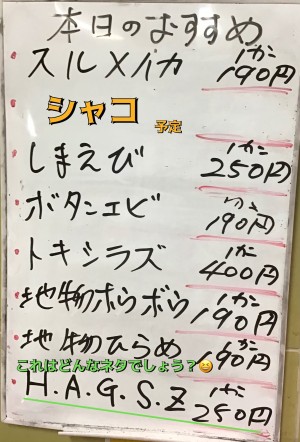 本日のおすすめ
スルメイカ 1カン 190円
シャコ 予定
しまえび 1カン 250円
ボタンエビ 1カン 190円
トキシラズ 1カン 400円
地物ホウボウ 1カン 190円
地物ひらめ 1カン 190円
これはどんなネタでしょう？😆
H.A.G.S.Z 1カン 250円